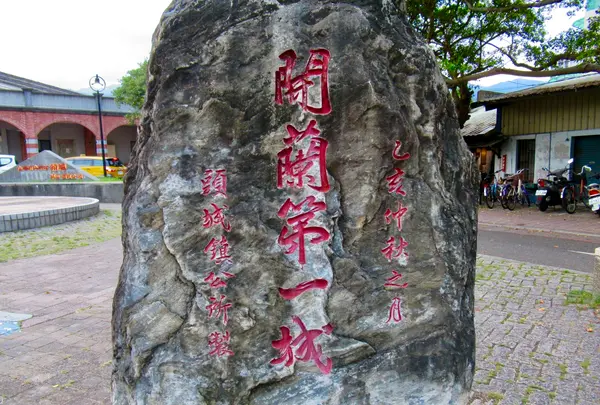 乙亥仲秋之月
開蘭第一城
頭城鎮公所製